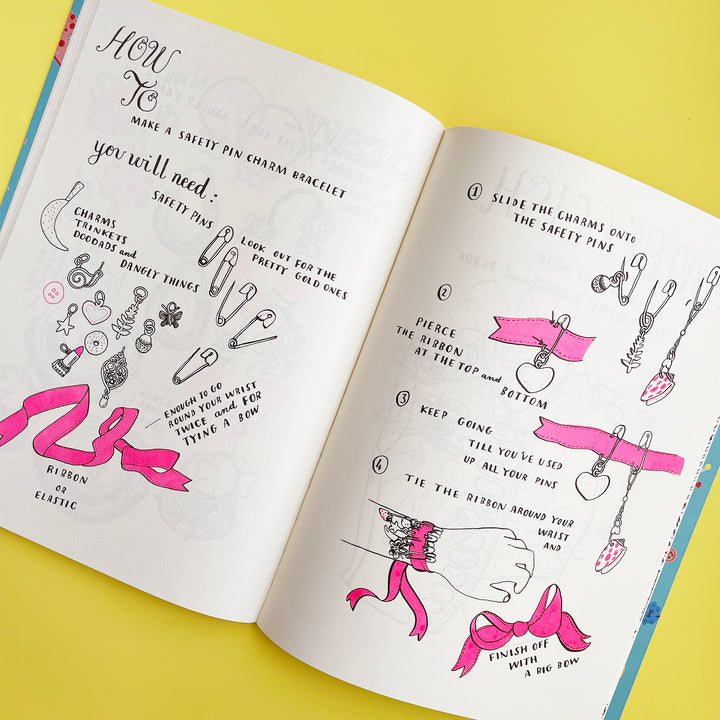 HOW
TO
MAKE A SAFETY PIN CHARM BRACELET
you will need:
SAFETY PINS
CHARMS
TRINKETS
DOODADS and
DANGLY THINGS
LOOK OUT FOR THE
PRETTY GOLD ONES
ENOUGH TO GO
ROUND YOUR WRIST
TWICE and FOR
TYING A BOW
RIBBON
OR
ELASTIC
1 SLIDE THE CHARMS ONTO
THE SAFETY PINS
2
PIERCE
THE RIBBON
AT THE TOP and BOTTOM
3 KEEP GOING
TILL YOU'VE USED
UP ALL YOUR PINS
4 TIE THE RIBBON AROUND YOUR
WRIST
AND
FINISH OFF
WITH
A BIG BOW